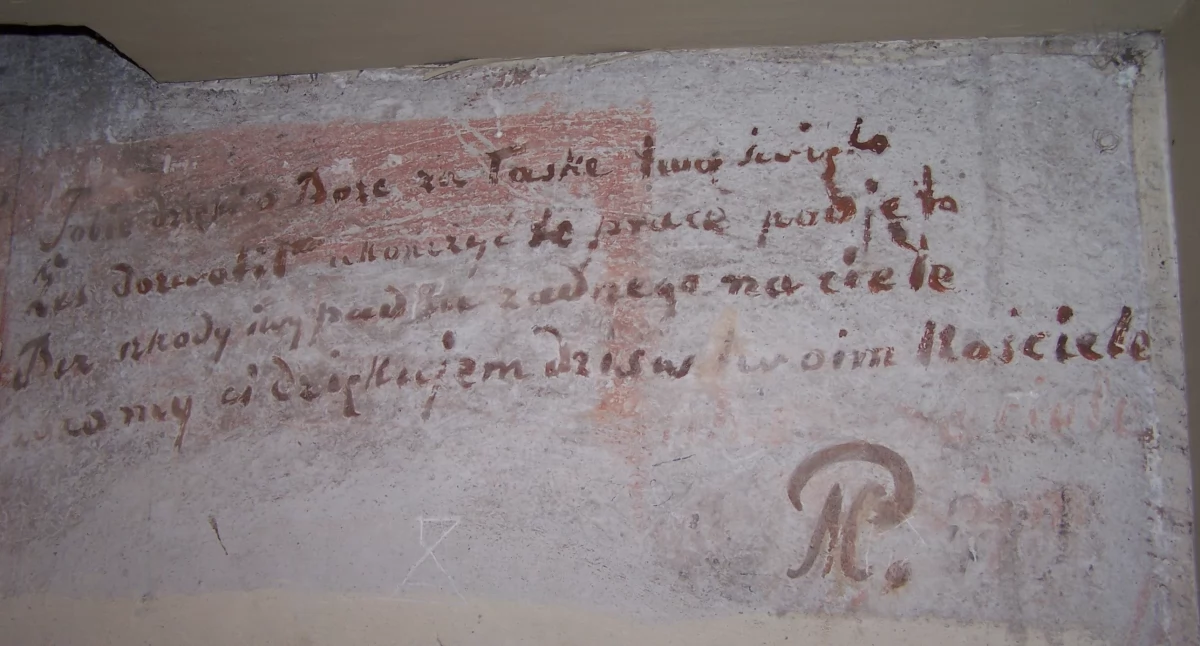 Tobie dzięki o Boze za Taske twą święto
Zes dozwolił ukonczyć te prace podjęto
Bez szkody i wypadku zadnego na ciele
my ci dziękujem dzis w twoim Kościele
na ciele